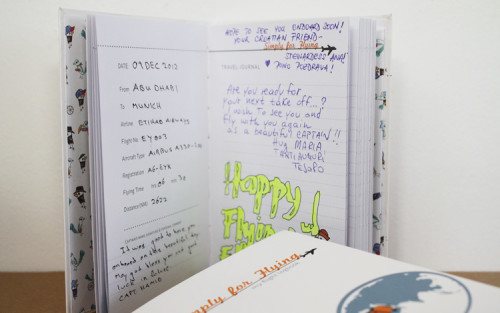 DATE: 09 DEC 2012
From ABU DHABI
To MUNICH
Airline ETIHAD AIRWAYS
Flight No. EY 003
Aircraft Type AIRBUS A330-200
Registration A6-EYK
Flying Time 06 30
Distance Flown 2822
It was good to have you
onboard on this beautiful day.
May god bless you and good
luck in future
CAPT. HAMID
HOPE TO SEE YOU ONBOARD SOON!
YOUR CROATIAN FRIEND-
Simply for Flying
STEWARDESS ANA!
TRAVEL JOURNAL
♥ PUNO POZDRAVA!
Are you ready for
your next take off...?
I wish to see you and
fly with you again
as a beautiful CAPTAIN!!
Hug MARIA
TANTI AUGURI
TESORO
Happy
Flying
Simply for Flying